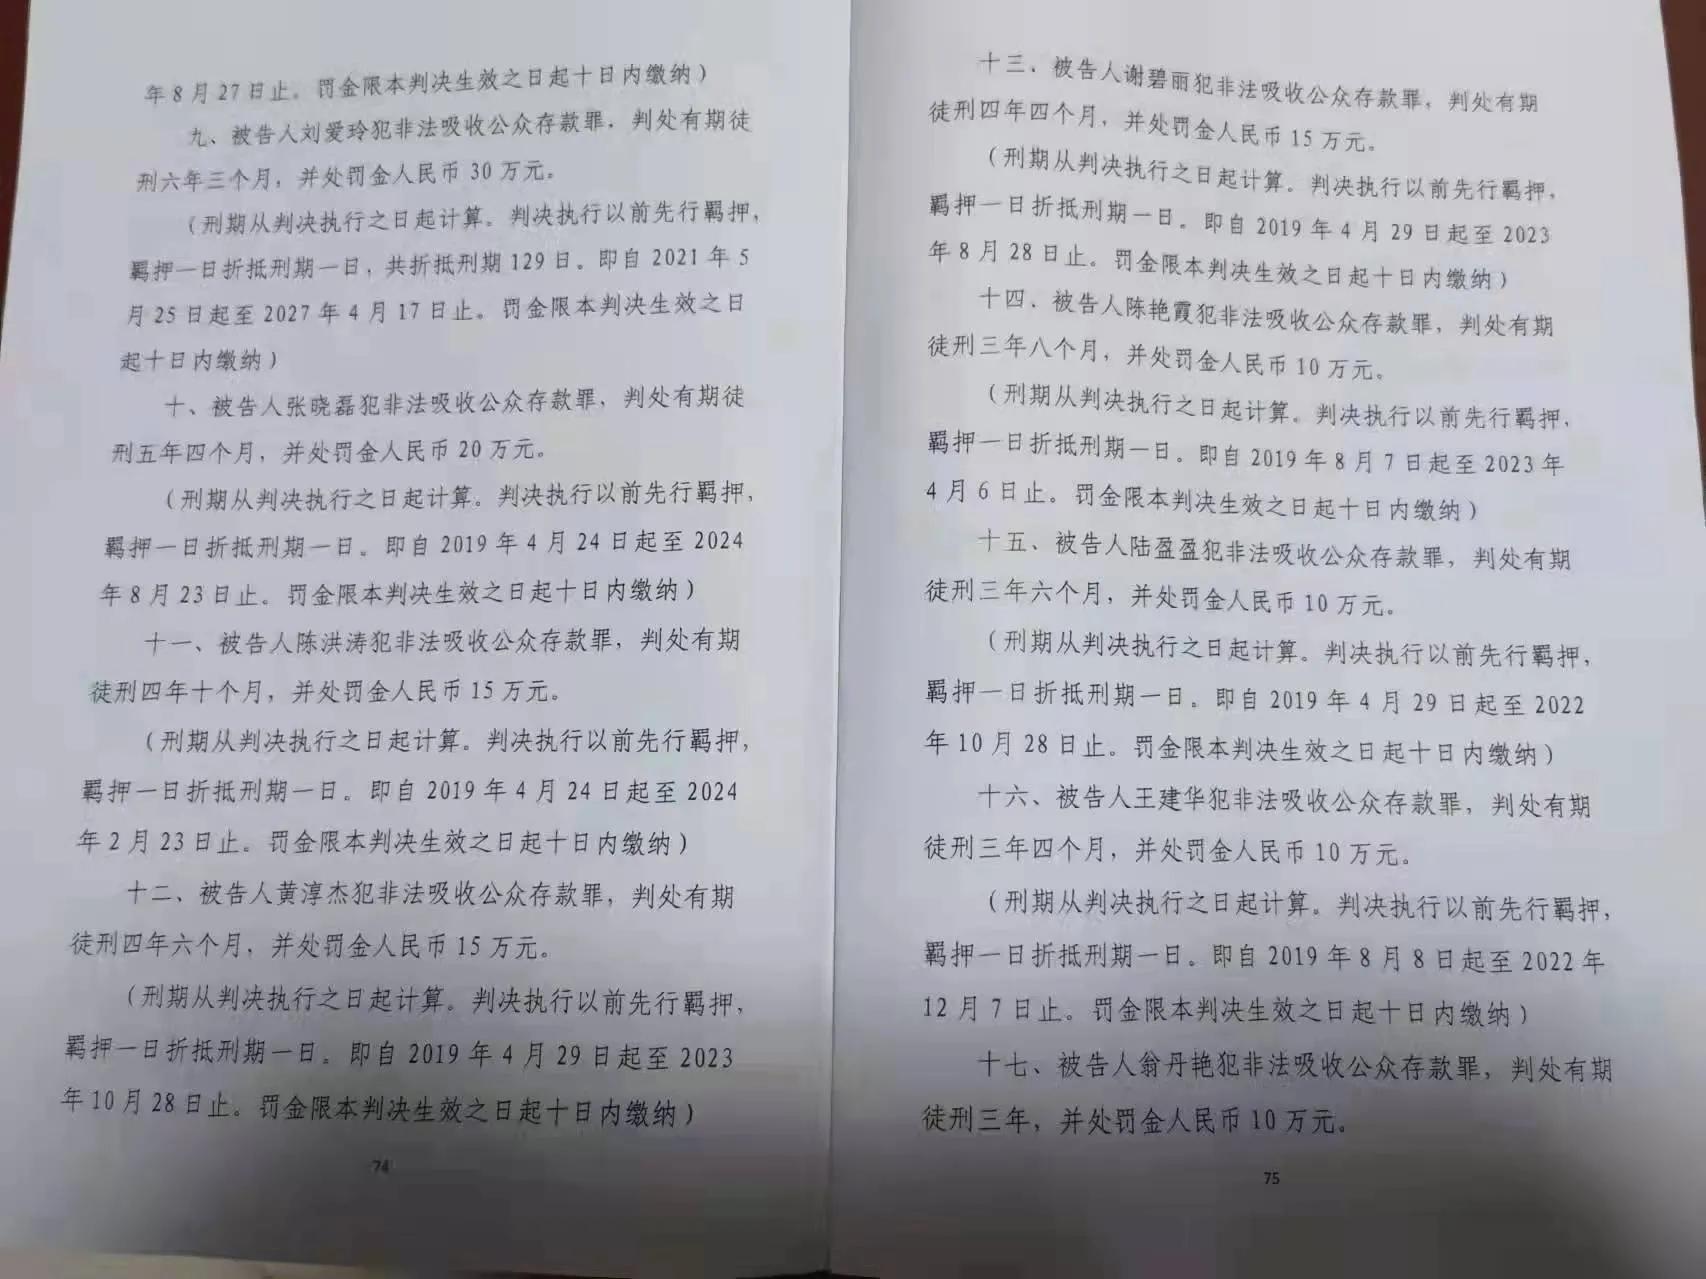 年 8 月 27 日止。罚金限本判决生效之日起十日内缴纳）
九、被告人刘爱玲犯非法吸收公众存款罪，判处有期徒
刑六年三个月，并处罚金人民币 30 万元。
（刑期从判决执行之日起计算。判决执行以前先行羁押，
羁押一日折抵刑期一日，共折抵刑期 129 日。即自 2021 年 5
月 25 日起至 2027 年 4 月 17 日止。罚金限本判决生效之日
起十日内缴纳）
十、被告人张晓磊犯非法吸收公众存款罪，判处有期徒
刑五年四个月，并处罚金人民币 20 万元。
（刑期从判决执行之日起计算。判决执行以前先行羁押，
羁押一日折抵刑期一日。即自 2019 年 4 月 24 日起至 2024
年 8 月 23 日止。罚金限本判决生效之日起十日内缴纳）
十一、被告人陈洪涛犯非法吸收公众存款罪，判处有期
徒刑四年十个月，并处罚金人民币 15 万元。
（刑期从判决执行之日起计算。判决执行以前先行羁押，
羁押一日折抵刑期一日。即自 2019 年 4 月 24 日起至 2024
年 2 月 23 日止。罚金限本判决生效之日起十日内缴纳）
十二、被告人黄淳杰犯非法吸收公众存款罪，判处有期
徒刑四年六个月，并处罚金人民币 15 万元。
（刑期从判决执行之日起计算。判决执行以前先行羁押，
羁押一日折抵刑期一日。即自 2019 年 4 月 29 日起至 2023
年 10 月 28 日止。罚金限本判决生效之日起十日内缴纳）
74
十三、被告人谢碧丽犯非法吸收公众存款罪，判处有期
徒刑四年四个月，并处罚金人民币 15 万元。
（刑期从判决执行之日起计算。判决执行以前先行羁押，
羁押一日折抵刑期一日。即自 2019 年 4 月 29 日起至 2023
年 8 月 28 日止。罚金限本判决生效之日起十日内缴纳）
十四、被告人陈艳霞犯非法吸收公众存款罪，判处有期
徒刑三年八个月，并处罚金人民币 10 万元。
（刑期从判决执行之日起计算。判决执行以前先行羁押，
羁押一日折抵刑期一日。即自 2019 年 8 月 7 日起至 2023 年
4 月 6 日止。罚金限本判决生效之日起十日内缴纳）
十五、被告人陆盈盈犯非法吸收公众存款罪，判处有期
徒刑三年六个月，并处罚金人民币 10 万元。
（刑期从判决执行之日起计算。判决执行以前先行羁押，
羁押一日折抵刑期一日。即自 2019 年 4 月 29 日起至 2022
年 10 月 28 日止。罚金限本判决生效之日起十日内缴纳）
十六、被告人王建华犯非法吸收公众存款罪，判处有期
徒刑三年四个月，并处罚金人民币 10 万元。
（刑期从判决执行之日起计算。判决执行以前先行羁押，
羁押一日折抵刑期一日。即自 2019 年 8 月 8 日起至 2022 年
12 月 7 日止。罚金限本判决生效之日起十日内缴纳）
十七、被告人翁丹艳犯非法吸收公众存款罪，判处有期
徒刑三年，并处罚金人民币 10 万元。
75